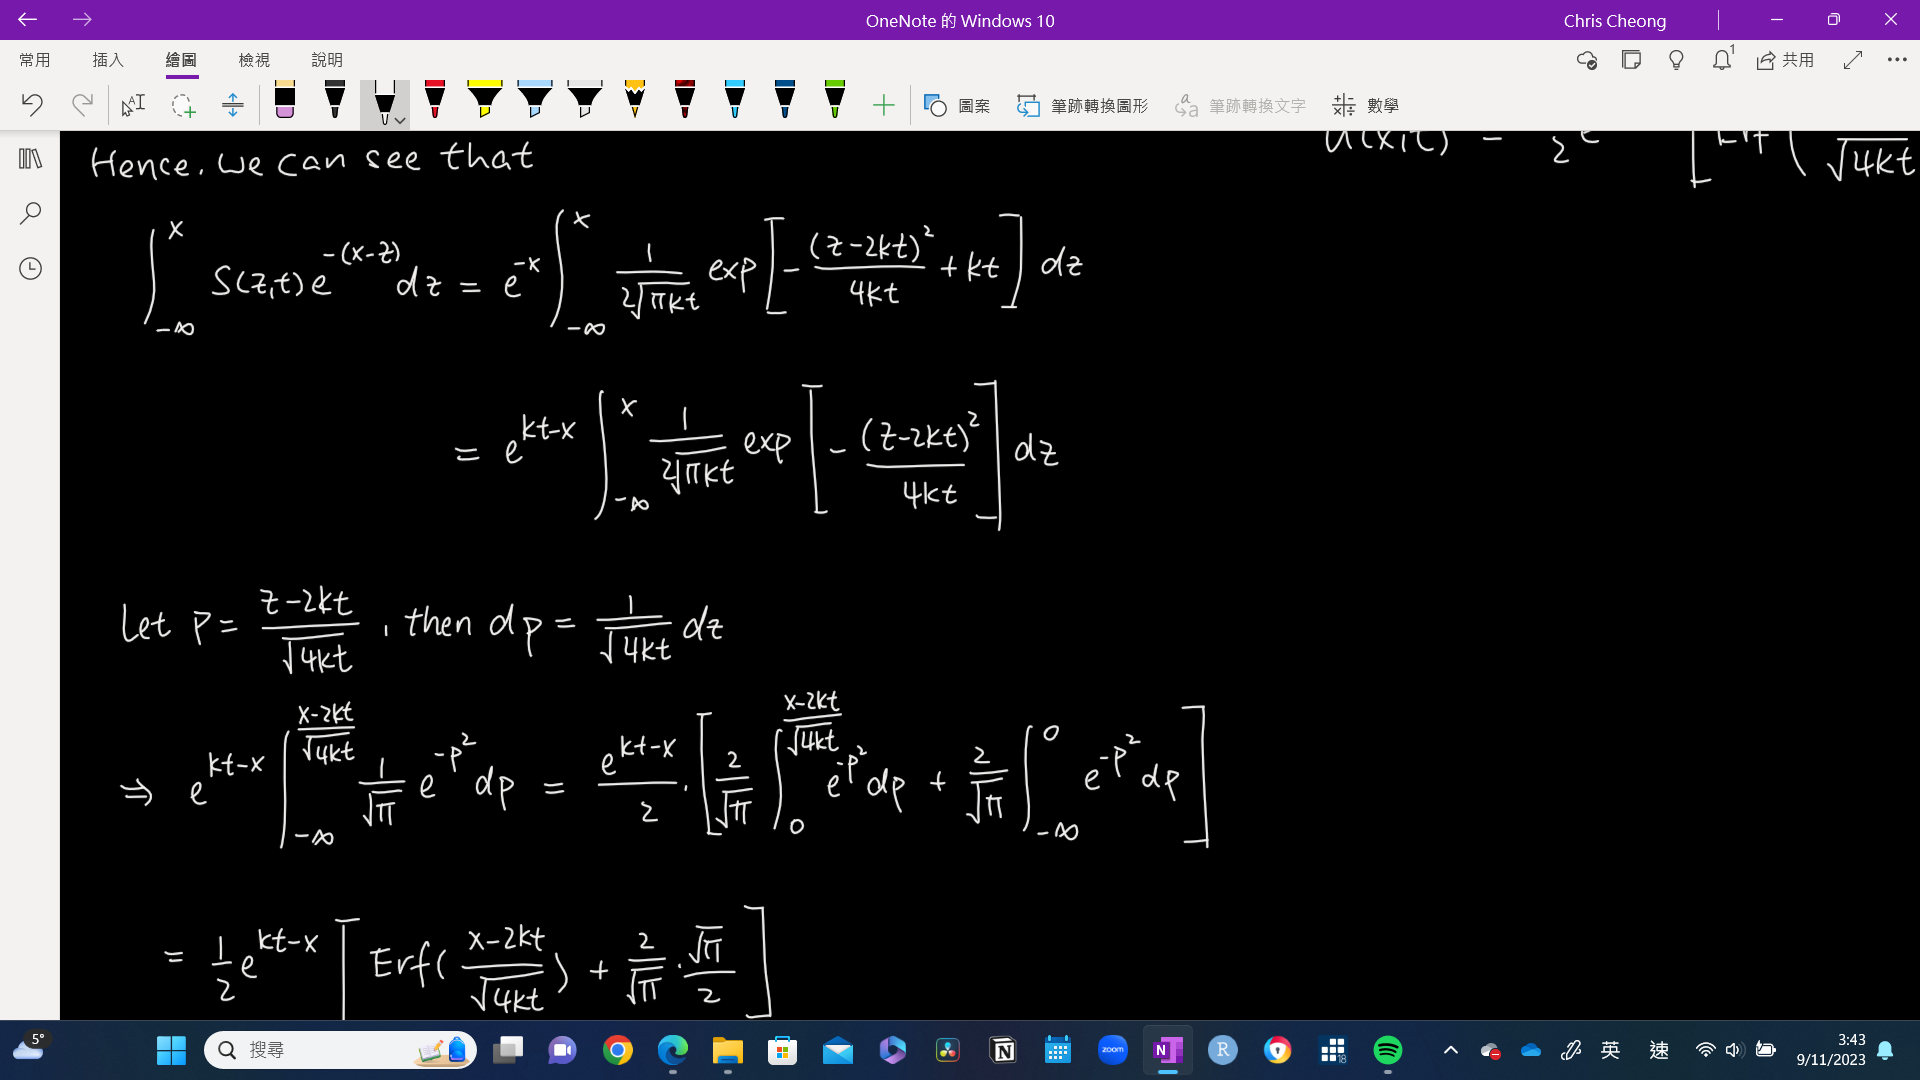 OneNote 的 Windows 10
Chris Cheong
常用 插入 繪圖 檢視 說明
1
共用
圖案 筆跡轉換圖形 筆跡轉換文字 數學
Hence. we can see that
u(x,t) = 1/2 e [Erf( √4kt
∫_{-∞}^{x} S(z,t) e^{-(x-z)} dz = e^{-x} ∫_{-∞}^{x} 1/(2√πkt) exp[-(z-2kt)²/4kt + kt] dz
= e^{kt-x} ∫_{-∞}^{x} 1/(2√πkt) exp[-(z-2kt)²/4kt] dz
Let p = (z-2kt)/√4kt , then dp = 1/√4kt dz
⇒ e^{kt-x} ∫_{-∞}^{(x-2kt)/√4kt} 1/√π e^{-p²} dp = e^{kt-x}/2 · [2/√π ∫_{0}^{(x-2kt)/√4kt} e^{-p²} dp + 2/√π ∫_{-∞}^{0} e^{-p²} dp]
= 1/2 e^{kt-x} [Erf((x-2kt)/√4kt) + 2/√π · √π/2]
5°
搜尋
zoom
18
英
速
3:43
9/11/2023